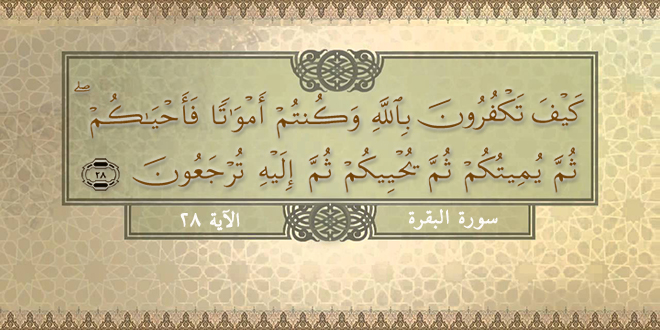 كَيْفَ تَكْفُرُونَ بِٱللَّهِ وَكُنتُمْ أَمْوَٰتًا فَأَحْيَـٰكُمْ ۖ
ثُمَّ يُمِيتُكُمْ ثُمَّ يُحْيِيكُمْ ثُمَّ إِلَيْهِ تُرْجَعُونَ ٢٨
سورة البقرة الآية ٢٨